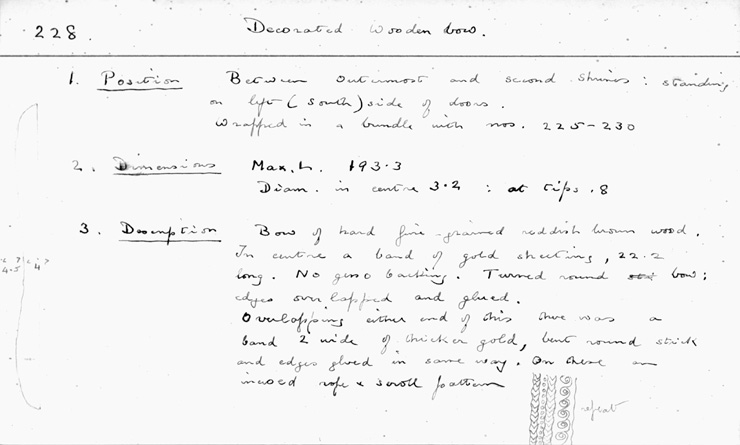 228. Decorated Wooden bow.
1. Position Between outermost and second shrines : standing
on left (South) side of doors.
Wrapped in a bundle with nos. 225-230
2. Dimensions Max. L. 193.3
Diam. in centre 3.2 : at tips .8
3. Description Bow of hard fine-grained reddish brown wood.
In centre a band of gold sheeting, 22.2
long. No gesso backing. Turned round bow;
edges overlapped and glued.
Overlapping either end of this there was a
band 2 wide of thicker gold, bent round stick
and edges glued in same way. On these an
incised rope & scroll pattern
repeat
4.5 4